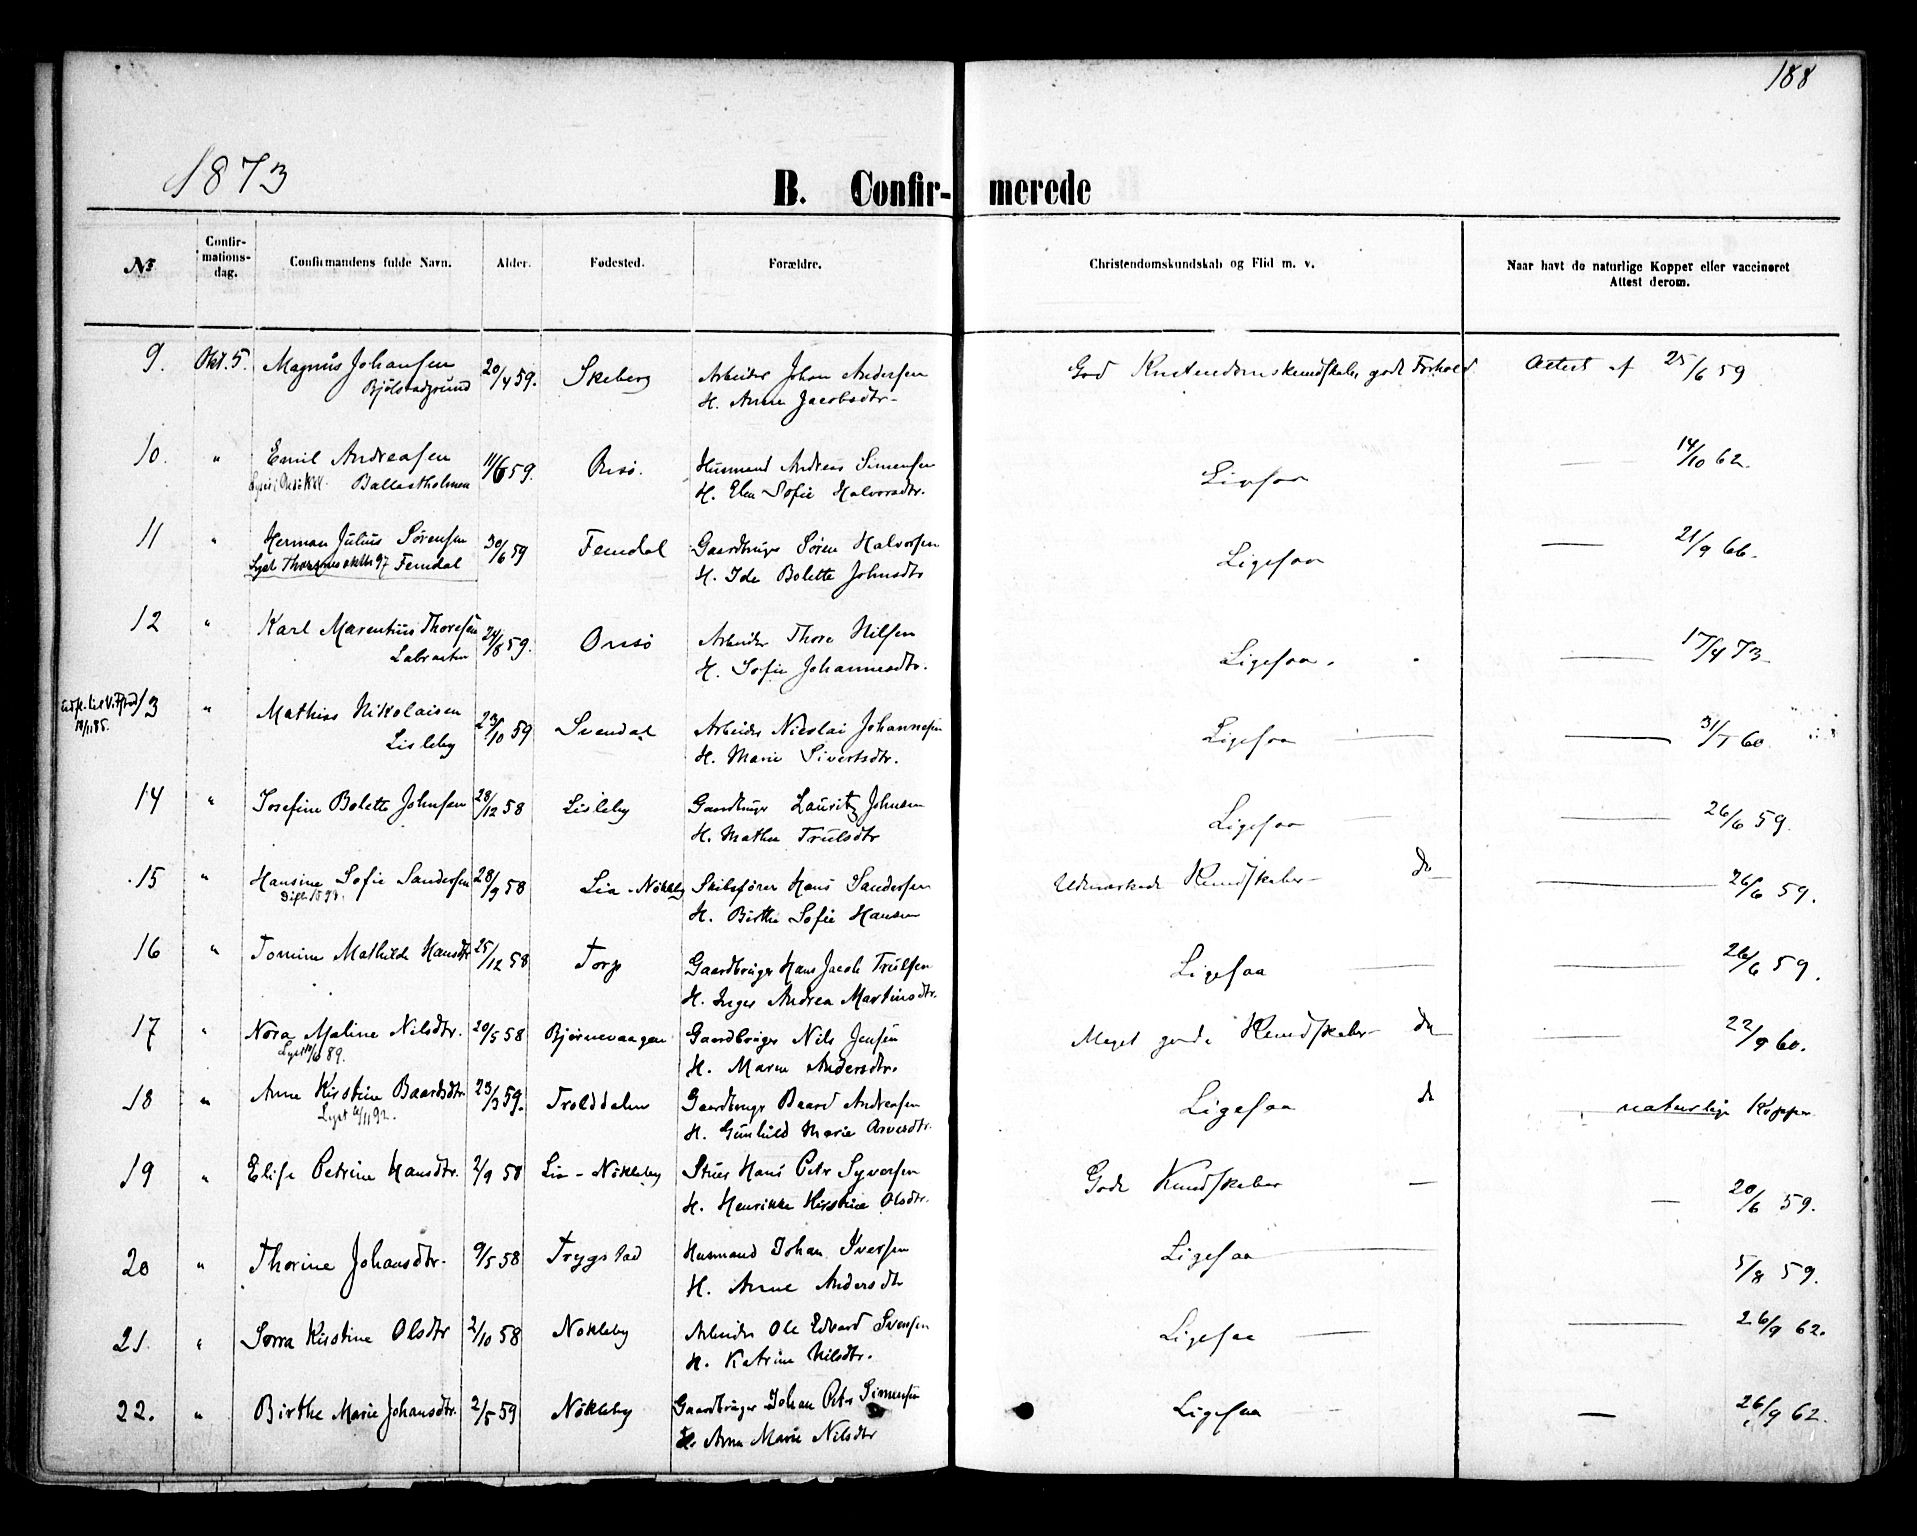 188
1873
B. Confir- merede
№
Confir-
mations-
dag.
Confirmandens fulde Navn.
Alder.
Fødested.
Forældre.
Christendomskundskab og Flid m. v.
Naar havt de naturlige Kopper eller vaccineret
Attest derom.
9. Okt. 5. Magnus Johansen 20/4 59. Skeberg Arbeider Johan Andersen God Kristendomskundskab, godt Forhold Attest af 25/6 59
Bjølstadgrund H. Anne Jacobsdtr
10. " Emil Andreasen 11/6 59. Onsö. Husmand Andreas Simensen Ligesaa — 14/10 62.
Ballastholmen H. Elen Sofie Halvorsdtr.
11 " Herman Julius Sørensen 30/6 59 Femdal Gaardbruger Søren Halvorsen Ligesaa — 21/9 66.
Lyst 97 Femdal H. Ida Bolette Johnsdtr
12 " Karl Marentius Thoresen 24/8 59. Onsö Arbeider Thore Nilsen Ligesaa. — 17/4 73
H. Sofie Johannesdtr.
13 " Mathias Nikolaisen 23/10 59 Svendal Arbeider Nicolai Johannesen Ligesaa — — 31/ 60
Lisleby H. Marie Sivertsdtr.
14 " Josefine Bolette Johnsen 28/12 58 Lisleby Gaardbruger Lauritz Johnsen Ligesaa — — 26/6 59.
H. Mathea Trulsdtr
15 " Hansine Sofie Sandersen 28/9 58 Lia-Nökleby Skibsfører Hans Sandersen Udmærkede Kundskaber — do — 26/6 59.
H. Birthe Sofie Hansen
16 " Tomine Mathilde Hansdtr 25/12 58 Torp Gaardbruger Hans Jacob Trulsen Ligesaa — — 26/6 59.
H. Inger Andrea Martinsdtr.
17 " Nora Maline Nilsdtr. 20/5 58 Bjørnevaagen Gaardbruger Nils Jensen Meget gode Kundskaber — do — 22/9 60.
89. H. Maren Andersdtr.
18 " Anne Kirstine Baardsdtr 23/3 59. Trolddalen Gaardbruger Baard Andreasen Ligesaa do naturlige Kopper
Lyst /11 92. H. Gunhild Marie
19 " Elise Petrine Hansdtr. 2/9 58 Lia-Nökleby Hans Petr Syversen Gode Kundskaber — — 20/6 59.
H. Henrikke Kirstine Olsdtr.
20 " Thorine Johansdtr. 9/5 58 Trygstad Husmand Johan Iversen Ligesaa — 5/8 59.
H. Anne Andersdtr
21. " Kirstine Olsdtr 2/10 58 Nökleby Arbeider Ole Edvard Svensen Ligesaa — — 26/9 62.
H. Katrine Nilsdtr.
22. " Birthe Marie Johansdtr. 2/5 59 Nökleby Gaardbruger Johan Peter Simensen Ligesaa — — 26/9 62.
H. Anna Marie Nilsdtr